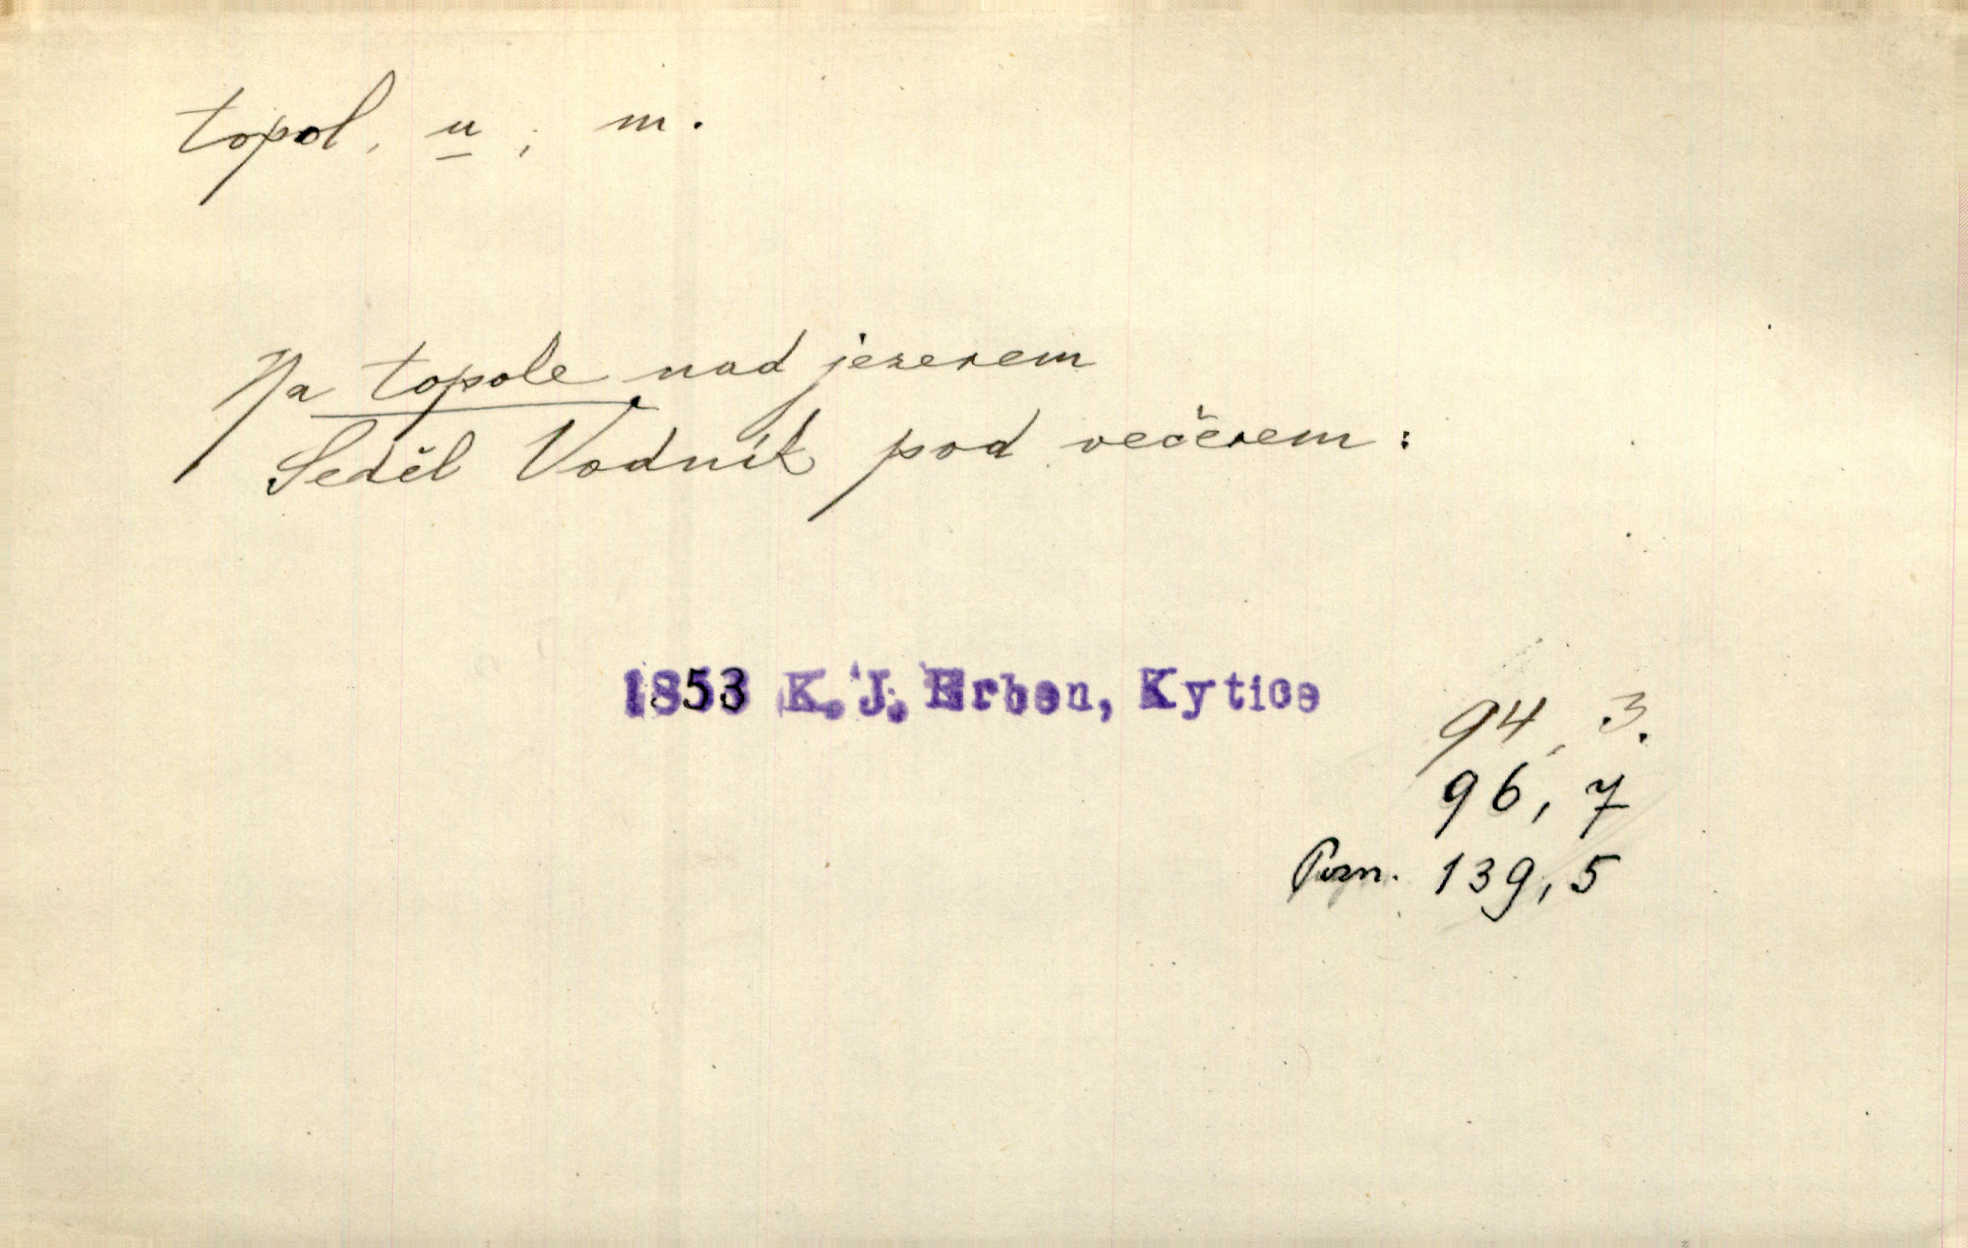 topol, u, m.
Na topole nad jezerem
Seděl Vodník pod večerem:
1853 K. J. Erben, Kytice
94, 3.
96, 7
Pozn. 139, 5